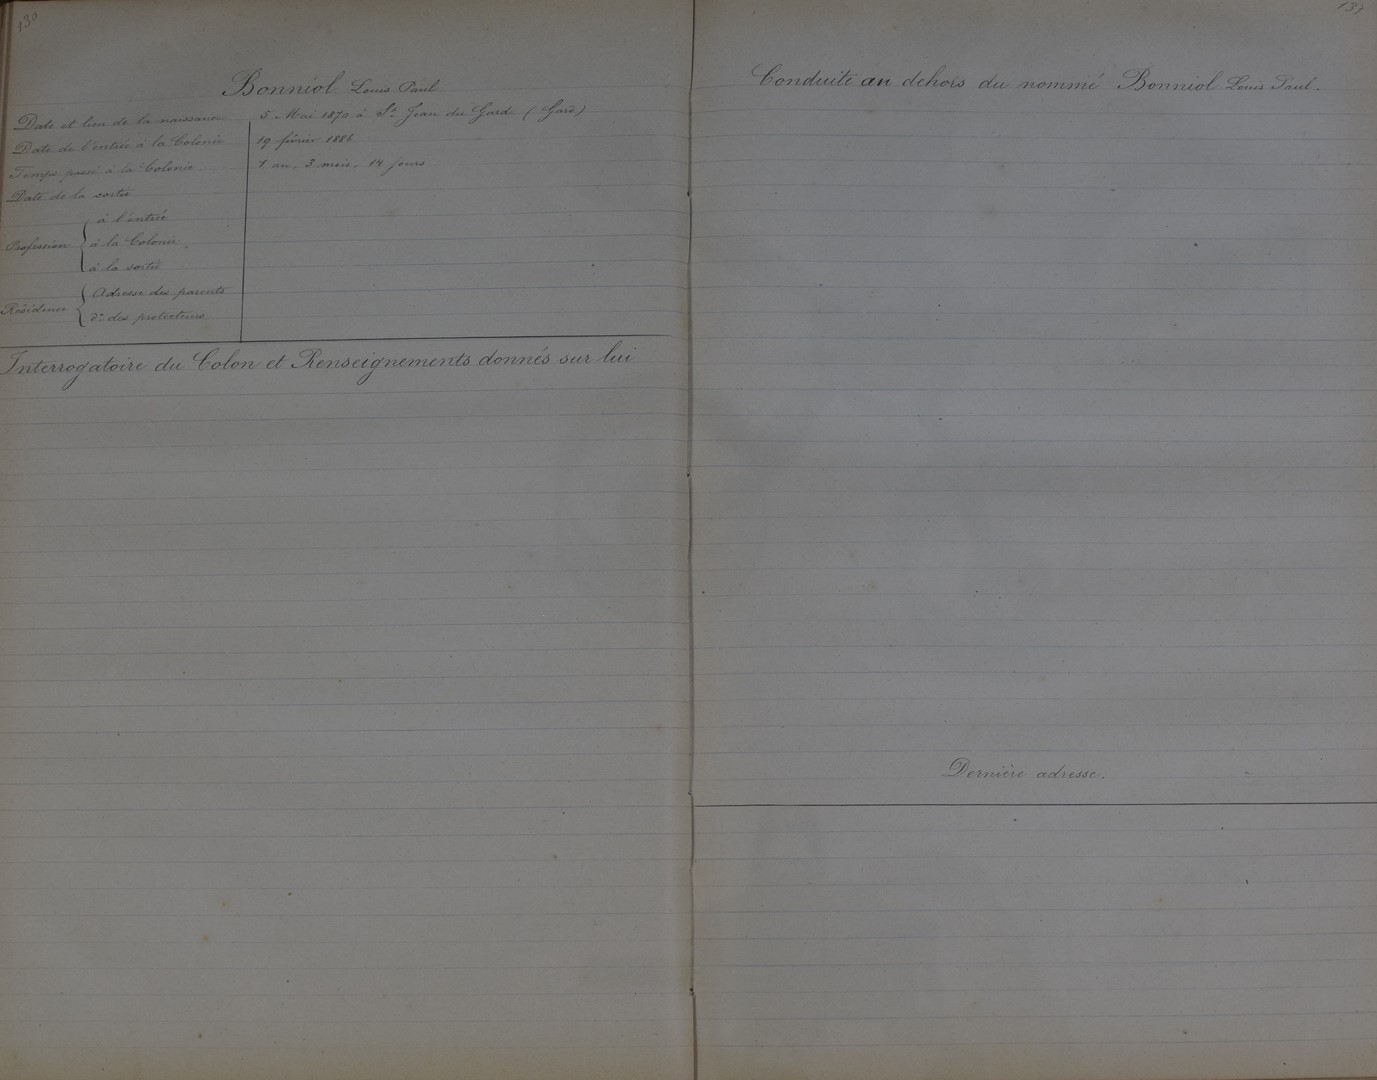 130
Bonniol Louis Paul
Date et lieu de la naissance 5 Mai 1870 à St Jean du Gard (Gard)
Date de l'entrée à la Colonie 19 février 1886
Temps passé à la Colonie 1 an. 3 mois. 14 jours
Date de la sortie
Profession
à l'entrée
à la Colonie
à la sortie
Résidence
Adresse des parents
do des protecteurs
Interrogatoire du Colon et Renseignements donnés sur lui
Conduite au dehors du nommé Bonniol Louis Paul.
Dernière adresse.